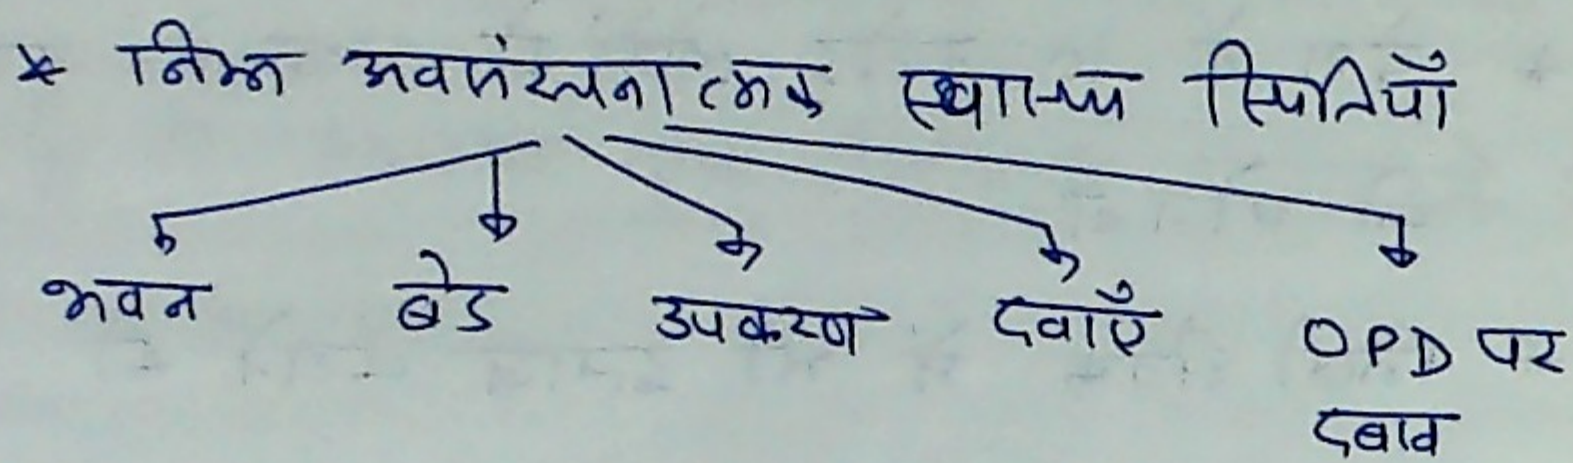 * निम्न अवसंरचनात्मक स्वास्थ्य स्थितियाँ
भवन बेड उपकरण दवाएँ OPD पर
दबाव